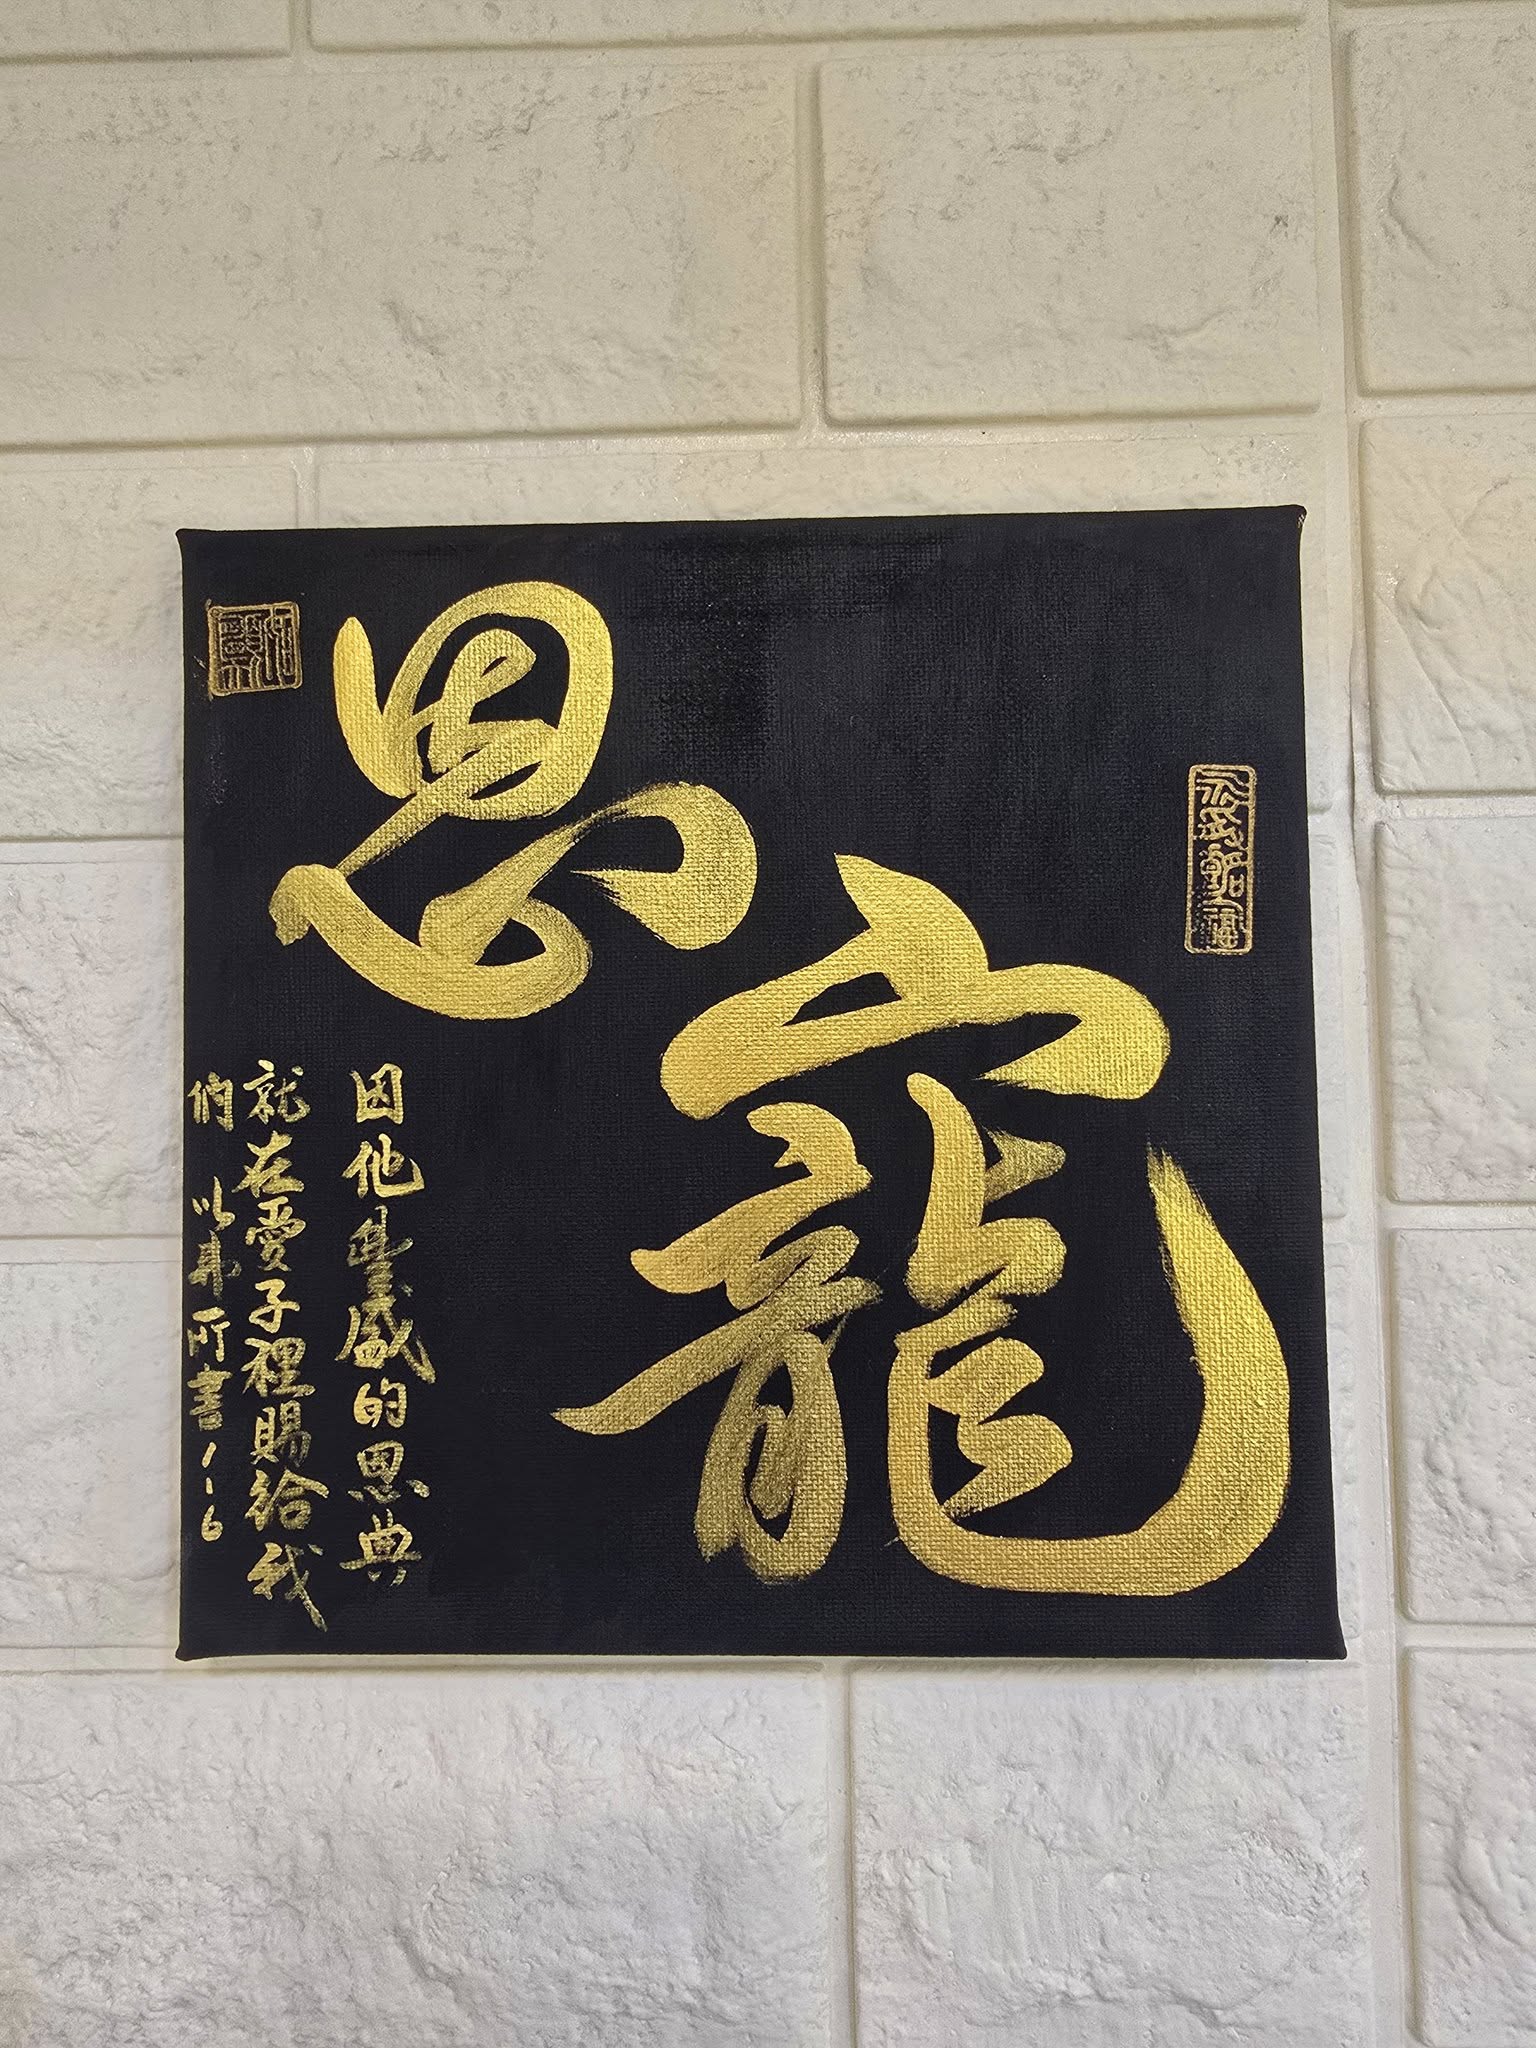 恩寵
因他豐盛的恩典
就在愛子裡賜給我
們
以弗所書1-6